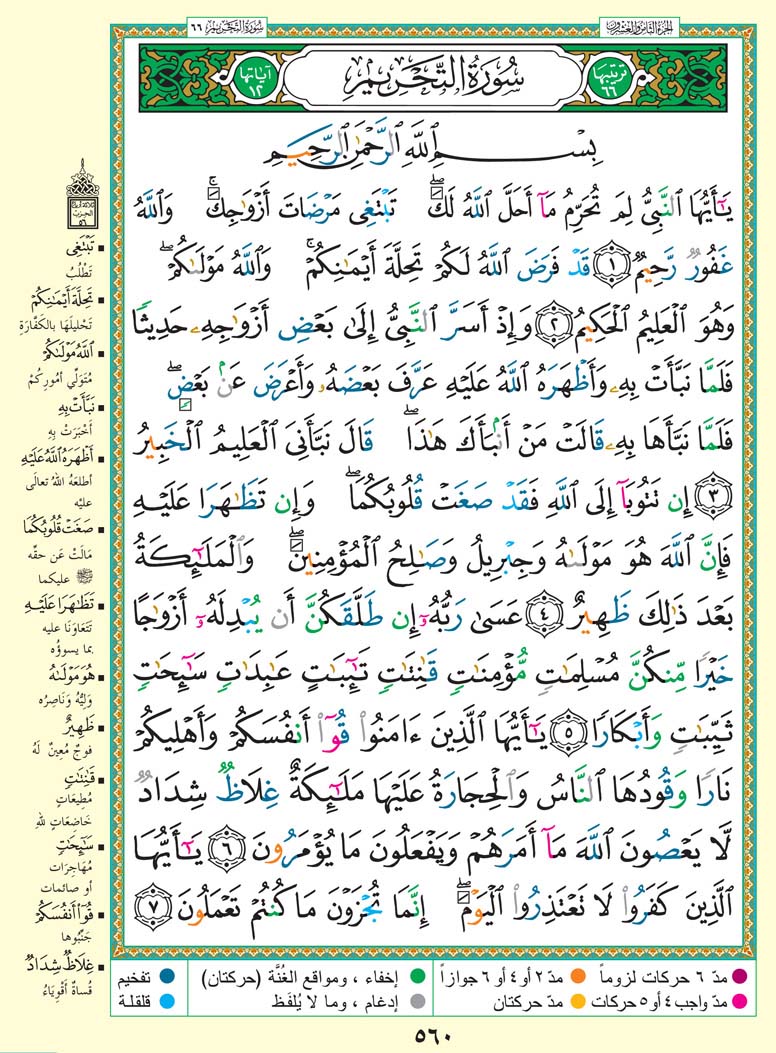 الجزء الثامن والعشرون
سورة التحريم ٦٦
ترتيبها ٦٦
سُورَةُ التَّحْرِيمِ
آياتها ١٢
بِسْمِ ٱللَّهِ ٱلرَّحْمَٰنِ ٱلرَّحِيمِ
يَٰٓأَيُّهَا ٱلنَّبِيُّ لِمَ تُحَرِّمُ مَآ أَحَلَّ ٱللَّهُ لَكَ ۖ تَبْتَغِى مَرْضَاتَ أَزْوَٰجِكَ ۚ وَٱللَّهُ
غَفُورٌ رَّحِيمٌ ١ قَدْ فَرَضَ ٱللَّهُ لَكُمْ تَحِلَّةَ أَيْمَٰنِكُمْ ۚ وَٱللَّهُ مَوْلَىٰكُمْ ۖ
وَهُوَ ٱلْعَلِيمُ ٱلْحَكِيمُ ٢ وَإِذْ أَسَرَّ ٱلنَّبِيُّ إِلَىٰ بَعْضِ أَزْوَٰجِهِۦ حَدِيثًا
فَلَمَّا نَبَّأَتْ بِهِۦ وَأَظْهَرَهُ ٱللَّهُ عَلَيْهِ عَرَّفَ بَعْضَهُۥ وَأَعْرَضَ عَنۢ بَعْضٍ ۖ
فَلَمَّا نَبَّأَهَا بِهِۦ قَالَتْ مَنْ أَنۢبَأَكَ هَٰذَا ۖ قَالَ نَبَّأَنِىَ ٱلْعَلِيمُ ٱلْخَبِيرُ
٣ إِن تَتُوبَآ إِلَى ٱللَّهِ فَقَدْ صَغَتْ قُلُوبُكُمَا ۖ وَإِن تَظَٰهَرَا عَلَيْهِ
فَإِنَّ ٱللَّهَ هُوَ مَوْلَىٰهُ وَجِبْرِيلُ وَصَٰلِحُ ٱلْمُؤْمِنِينَ ۖ وَٱلْمَلَٰٓئِكَةُ
بَعْدَ ذَٰلِكَ ظَهِيرٌ ٤ عَسَىٰ رَبُّهُۥٓ إِن طَلَّقَكُنَّ أَن يُبْدِلَهُۥٓ أَزْوَٰجًا
خَيْرًا مِّنكُنَّ مُسْلِمَٰتٍ مُّؤْمِنَٰتٍ قَٰنِتَٰتٍ تَٰٓئِبَٰتٍ عَٰبِدَٰتٍ سَٰٓئِحَٰتٍ
ثَيِّبَٰتٍ وَأَبْكَارًا ٥ يَٰٓأَيُّهَا ٱلَّذِينَ ءَامَنُوا۟ قُوٓا۟ أَنفُسَكُمْ وَأَهْلِيكُمْ
نَارًا وَقُودُهَا ٱلنَّاسُ وَٱلْحِجَارَةُ عَلَيْهَا مَلَٰٓئِكَةٌ غِلَاظٌ شِدَادٌ
لَّا يَعْصُونَ ٱللَّهَ مَآ أَمَرَهُمْ وَيَفْعَلُونَ مَا يُؤْمَرُونَ ٦ يَٰٓأَيُّهَا
ٱلَّذِينَ كَفَرُوا۟ لَا تَعْتَذِرُوا۟ ٱلْيَوْمَ ۖ إِنَّمَا تُجْزَوْنَ مَا كُنتُمْ تَعْمَلُونَ ٧
ثلاثة أرباع
الحزب
٥٦
تَبْتَغِي
تَطْلُبُ
تَحِلَّةَ أَيْمَٰنِكُمْ
تَحْلِيلَهَا بالكَفَّارَةِ
ٱللَّهُ مَوْلَىٰكُمْ
مُتَوَلِّي أمُورِكُمْ
نَبَّأَتْ بِهِ
أَخْبَرَتْ بِهِ
أَظْهَرَهُ ٱللَّهُ عَلَيْهِ
أطلعَهُ اللهُ تعالى
عليْه
صَغَتْ قُلُوبُكُمَا
مَالَتْ عَن حقِّه
ﷺ عليكما
تَظَٰهَرَا عَلَيْهِ
تَتَعَاوَنَا عليه
بما يسوؤُه
هُوَ مَوْلَىٰهُ
وَلِيُّهُ وَنَاصِرُه
ظَهِيرٌ
فوجٌ مُعِينٌ لَهُ
قَٰنِتَٰتٍ
مُطِيعَاتٍ
خَاضِعَاتٍ للهِ
سَٰٓئِحَٰتٍ
مُهَاجِرَات
أو صائمات
قُوٓا۟ أَنفُسَكُمْ
جَنِّبُوها
غِلَاظٌ شِدَادٌ
قُساةٌ أَقْوِيَاءُ
مدّ ٦ حركات لزوماً
مدّ ٢ أو ٤ أو ٦ جوازاً
إخفاء ، ومواقع الغُنَّة (حركتان)
تفخيم
مدّ واجب ٤ أو ٥ حركات
مدّ حركتان
إدغام ، وما لا يُلفَظ
قلقلة
٥٦٠